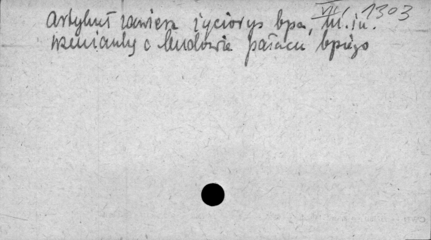 VII/1303
Artykuł zawiera życiorys bpa, m.in.
wzmianki o budowie pałacu bpiego